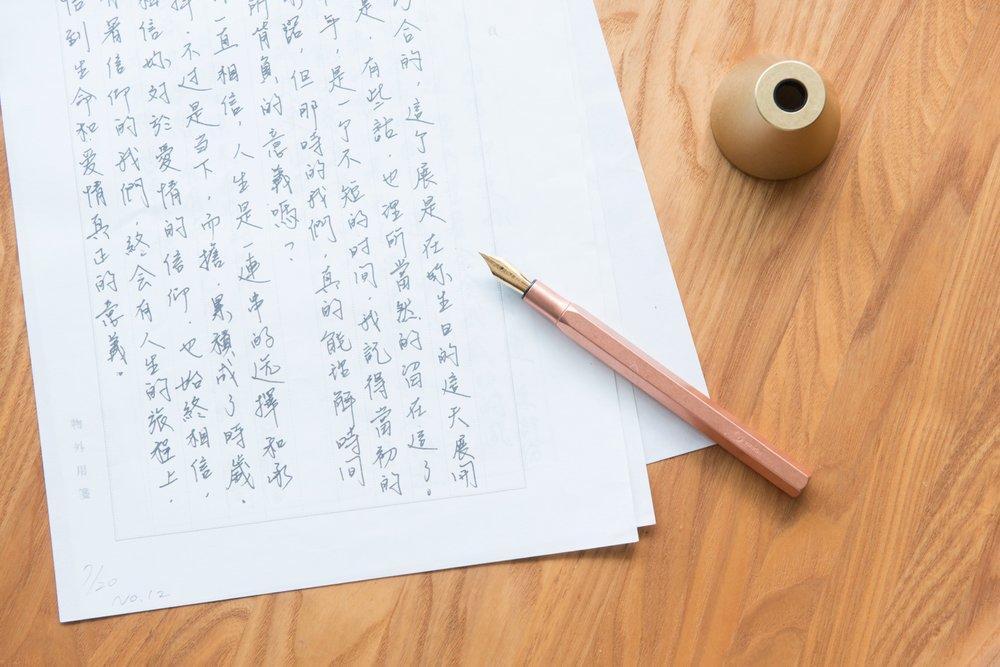 合的,這个展是在妳生日的這天展開
是,有些話,也理所當然的留在這了。
年,是一个不短的时间,我記得當初的
但那時的我們,真的能理解時間
所背負的意義嗎?
一直相信,人生是一連串的选擇和承
擇,不过是当下,而擔,累積成了時歲。
相信妳对於愛情的信仰,也始終相信,
有著信仰的我們,終会有人生的旅程上,
悟到生命和爱情真正的意義。
物外用箋
7/20
No.12